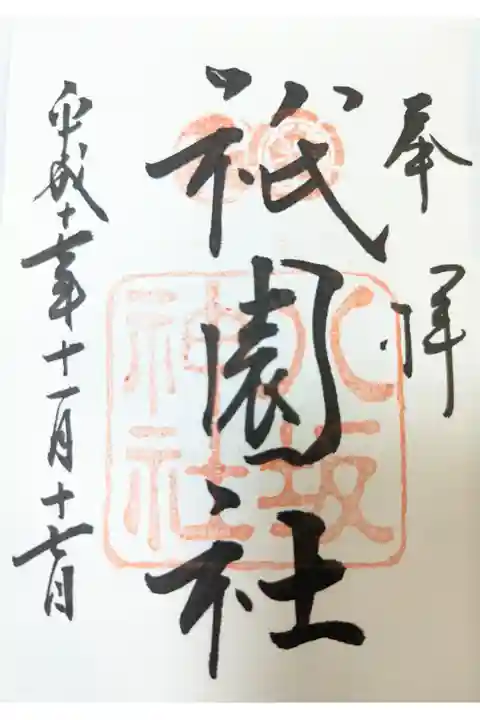 奉拝
祇園社
八坂
神社
平成十 年十一月十七日